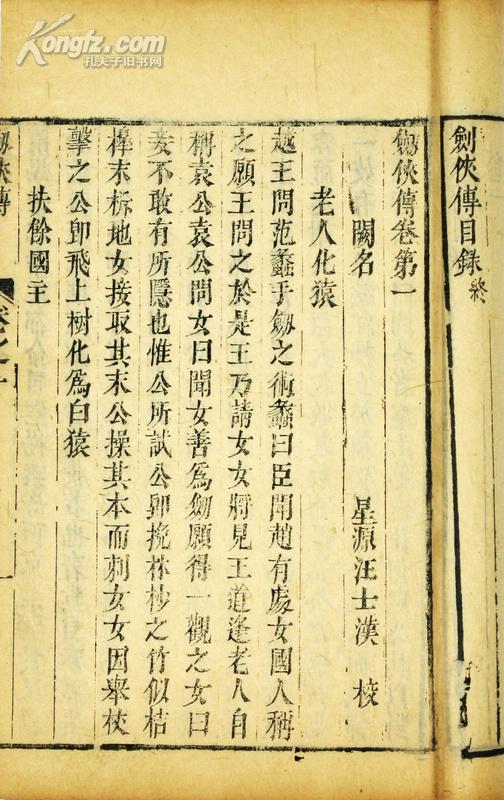 Kongfz.com
孔夫子旧书网
劍俠傳目錄終
劔俠傳卷第一
闕名 星源汪士漢 校
老人化猿
越王問范蠡手劔之術蠡曰臣聞趙有處女國人稱
之願王問之於是王乃請女女將見王道逢老人自
稱袁公袁公問女曰聞女善為劔願得一觀之女曰
妾不敢有所隱也惟公所試公卽挽林杪之竹似桔
橰末折地女接取其末公操其本而刺女女因舉杖
擊之公卽飛上樹化為白猿
扶餘國主
劔俠傳